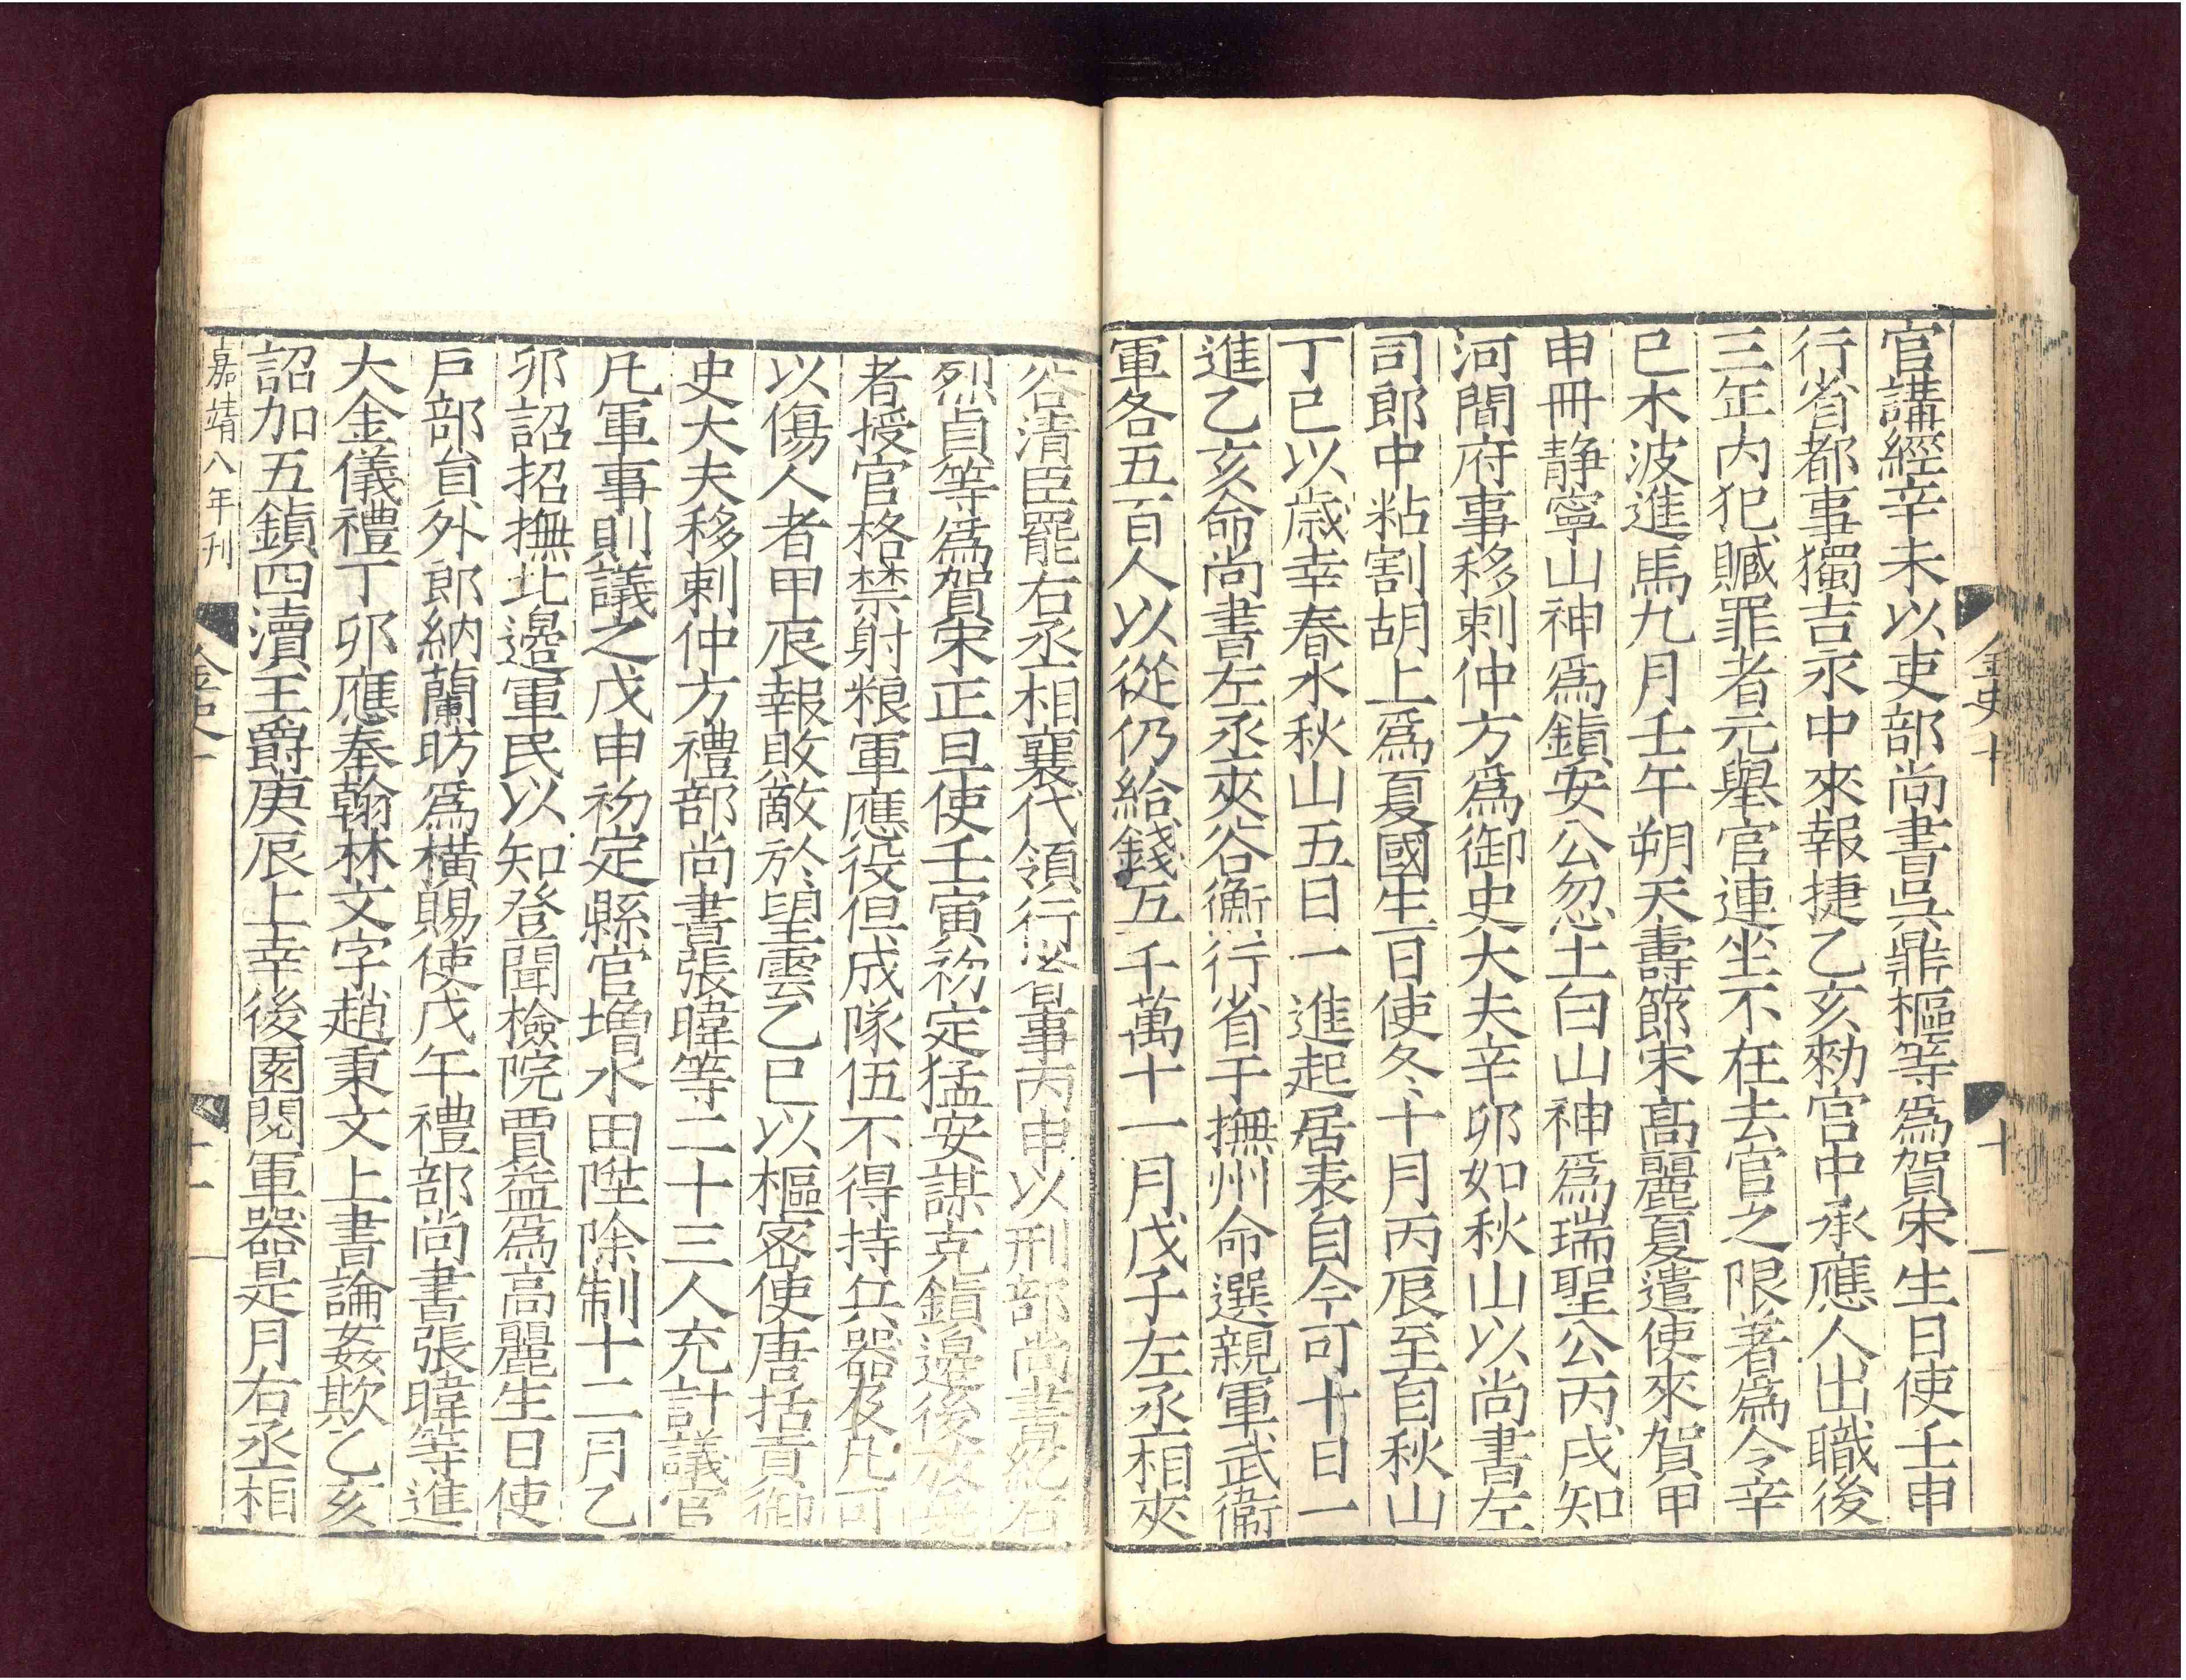 金史十
十
官講經辛未以吏部尚書吳鼎樞等爲賀宋生日使壬申
行省都事獨吉永中來報捷乙亥勑宫中承應人出職後
三年内犯贓罪者元舉官連坐不在去官之限著爲令辛
巳木波進馬九月壬午朔天壽節宋髙麗夏遣使來賀甲
申冊静寧山神爲鎮安公忽土白山神爲瑞聖公丙戌知
河間府事移剌仲方爲御史大夫辛卯如秋山以尚書左
司郎中粘割胡上爲夏國生日使冬十月丙辰至自秋山
丁巳以歳幸春水秋山五日一進起居表自今可十日一
進乙亥命尚書左丞夾谷衡行省于撫州命選親軍武衞
軍各五百人以從仍給錢五千萬十一月戊子左丞相夾
谷清臣罷右丞相襄代領行省事丙申以刑部尚書紇石
烈貞等爲賀宋正旦使壬寅初定猛安謀克鎮邊後放免
者授官格禁射粮軍應役但成隊伍不得持兵器及凡可
以傷人者甲辰報敗敵於望雲乙巳以樞密使唐括貢御
史大夫移剌仲方禮部尚書張暐等二十三人充計議官
凡軍事則議之戊申初定縣官増水田陞除制十二月乙
卯詔招撫北邊軍民以知登聞檢院賈益爲高麗生日使
戶部員外郎納蘭昉爲橫賜使戊午禮部尚書張暐等進
大金儀禮丁卯應奉翰林文字趙秉文上書論姦欺乙亥
詔加五鎮四瀆王爵庚辰上幸後園閱軍器是月右丞相
嘉靖八年刊
金史十
十一